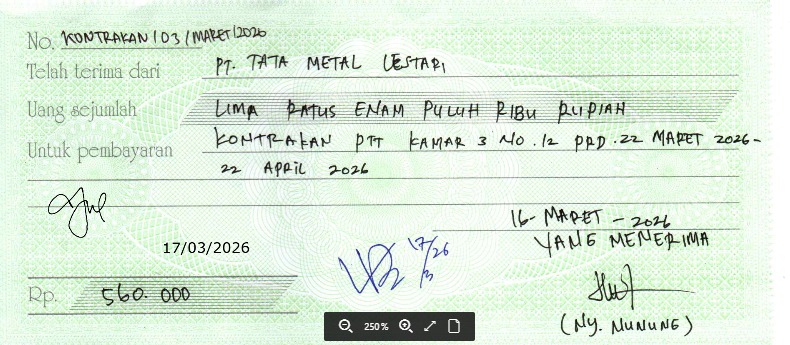 No. KONTRAKAN / 03 / MARET / 2026
Telah terima dari PT. TATA METAL LESTARI
Uang sejumlah LIMA RATUS ENAM PULUH RIBU RUPIAH
Untuk pembayaran KONTRAKAN PTT KAMAR 3 NO.12 PRD.22 MARET 2026-
22 APRIL 2026
16-MARET-2026
YANG MENERIMA
17/03/2026
17/3/26
Rp. 560.000
250%
(NY. NUNUNG)